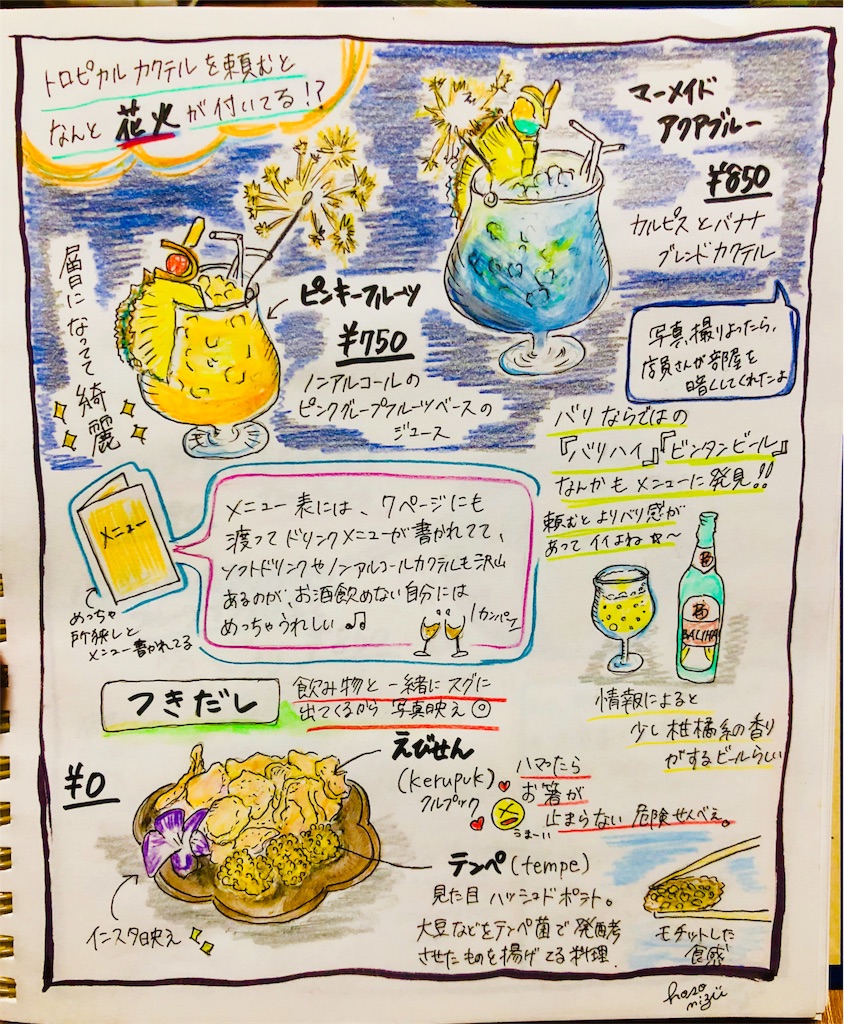 トロピカルカクテルを頼むと
なんと花火が付いてる!?
マーメイド
アクアブルー
¥850
カルピスとバナナ
ブレンドカクテル
層になってて綺麗
ピンキーフルーツ
¥750
ノンアルコールの
ピンクグレープフルーツベースの
ジュース
写真撮りよったら、
店員さんが部屋を
暗としてくれたよ
バリならではの
『バリハイ』『ビンタンビール』
なんかもメニューに発見!!
頼むとよりバリ感が
あってイイよね☆〜
メニュー
めっちゃ
所狭しと
メニュー書かれてる
メニュー表には、7ページにも
渡ってドリンクメニューが書かれてて、
ソフトドリンクやノンアルコールカクテルも沢山
あるのが、お酒飲めない自分には
めっちゃうれしい♫
カンパイ
BALIHAI
情報によると
少し柑橘系の香り
がするビールらしい
つきだし
飲み物と一緒にスグに
出てくるから写真映え◎
¥0
えびせん
(kerupuk)
クルプック
ハマったら
お箸が
止まらない危険せんべえ。
うまーい
テンペ(tempe)
見た目ハッシュドポテト。
大豆などをテンペ菌で発酵
させたものを揚げてる料理.
インスタ映え
モチットした
食感